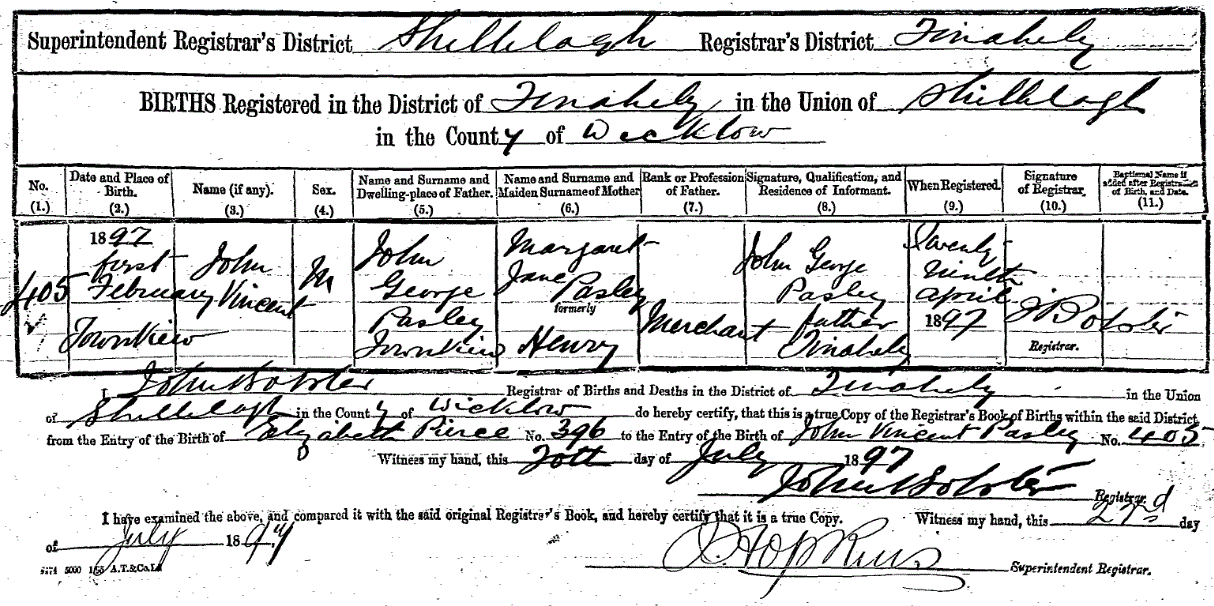 Superintendent Registrar's District Shillelagh Registrar's District Tinahely
BIRTHS Registered in the District of Tinahely in the Union of Shillelagh
in the County of Wicklow
No. (1.)
Date and Place of Birth. (2.)
Name (if any). (3.)
Sex. (4.)
Name and Surname and Dwelling-place of Father. (5.)
Name and Surname and Maiden Surname of Mother (6.)
Rank or Profession of Father. (7.)
Signature, Qualification, and Residence of Informant. (8.)
When Registered. (9.)
Signature of Registrar. (10.)
Baptismal Name if added after Registration of Birth, and Date. (11.)
405
1897
first
February
Townview
John
Vincent
M
John
George
Pasley
Townview
Margaret
Jane Pasley
formerly
Henry
Merchant
John George
Pasley
father
Tinahely
Twenty
ninth
April
1897
Registrar.
I Registrar of Births and Deaths in the District of Tinahely in the Union
of Shillelagh in the County of Wicklow do hereby certify, that this is a true Copy of the Registrar's Book of Births within the said District,
from the Entry of the Birth of Elizabeth Pierce No. 396 to the Entry of the Birth of John Vincent Pasley No. 405
Witness my hand, this day of July 1897
Registrar.
I have examined the above, and compared it with the said original Registrar's Book, and hereby certify that it is a true Copy. Witness my hand, this 22d day
of July 1897
Hopkins Superintendent Registrar.
A.T.&Co.Ld